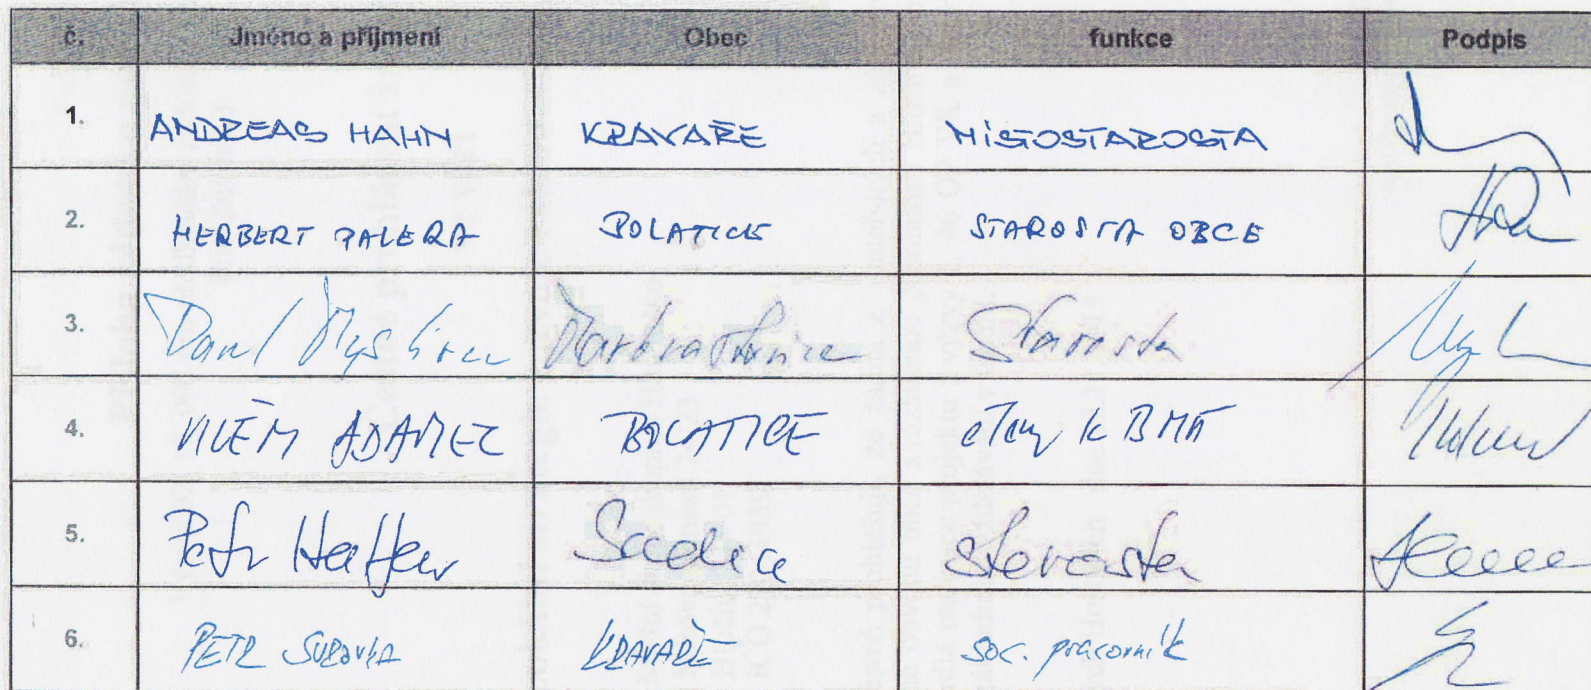 č. Jméno a příjmení Obec funkce Podpis
1. ANDREAS HAHN KRAVAŘE MÍSTOSTAROSTA
2. HERBERT PALERA BOLATICE STAROSTA OBCE
3. Starosta
4. VILÉM ADAMEC BOLATICE KBMA
5. Petr Sudice starosta
6. PETR SUROVKA KRAVAŘE soc. pracovník